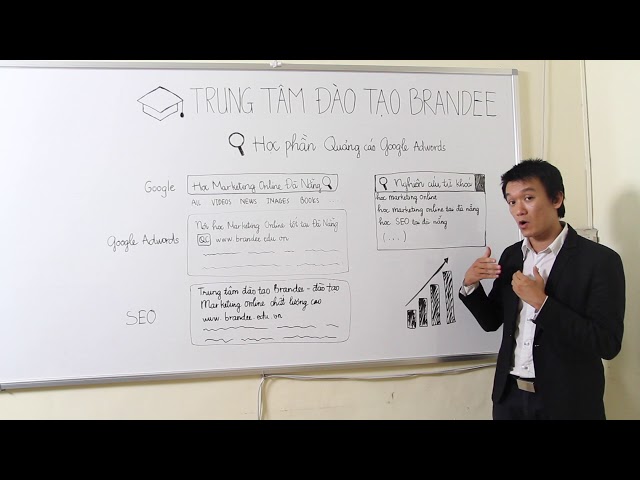 TRUNG TÂM ĐÀO TẠO BRANDEE
Học phần Quảng cáo Google Adwords
Google
Học Marketing Online Đà Nẵng
ALL VIDEOS NEWS IMAGES BOOKS ...
Google Adwords
Nơi học Marketing Online tốt tại Đà Nẵng
QC www.brandee.edu.vn
SEO
Trung tâm đào tạo Brandee - đào tạo
Marketing Online chất lượng cao
www.brandee.edu.vn
Nghiên cứu từ khoá
học marketing online
học marketing online tại đà nẵng
học SEO tại đà nẵng
(...)